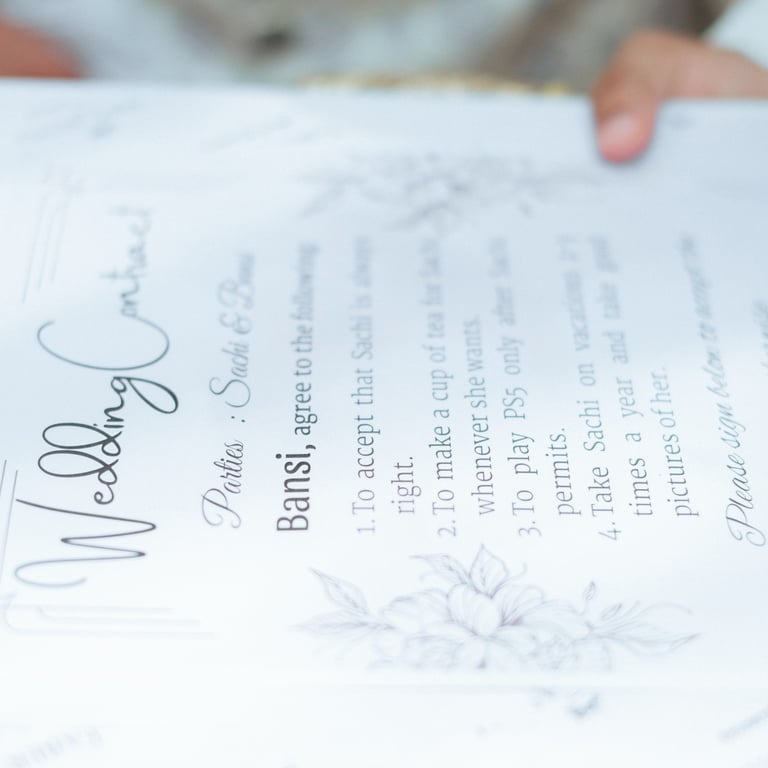 Wedding Contract
Parties : Sachi & Bansi
Bansi, agree to the following
1. To accept that Sachi is always
right.
2. To make a cup of tea for Sachi
whenever she wants.
3. To play PS5 only after Sachi
permits.
4. Take Sachi on vacations
times a year and take good
pictures of her.
Please sign below to accept the